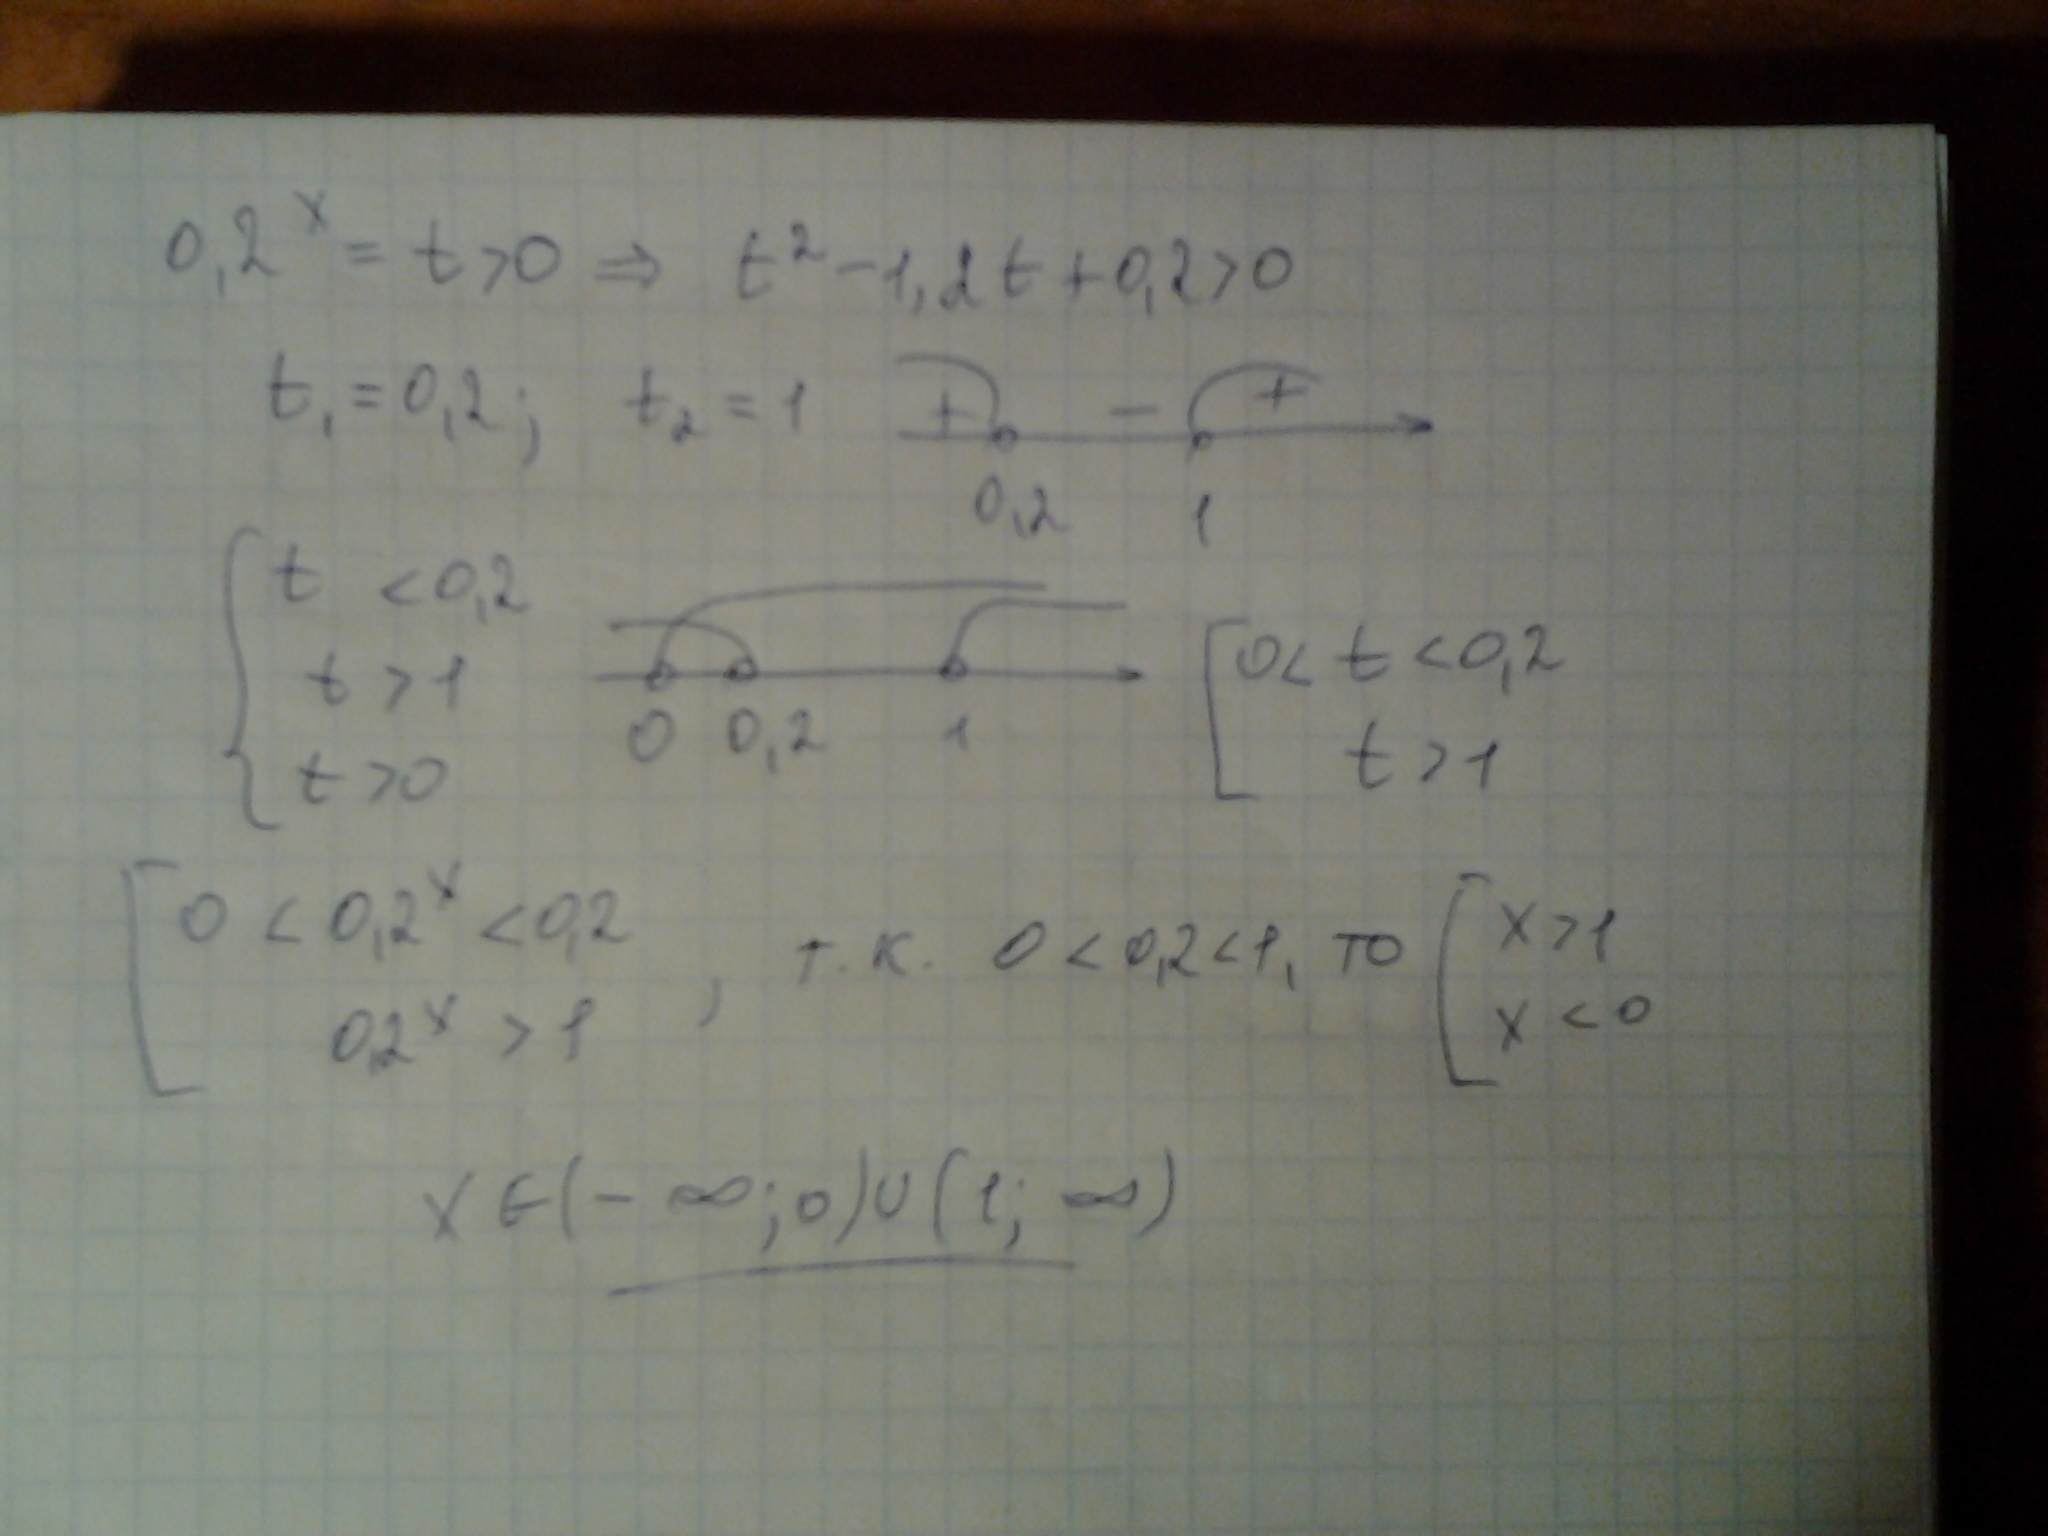 0,2ˣ = t > 0 ⇒ t² - 1,2t + 0,2 > 0
t₁ = 0,2; t₂ = 1 + - +
0,2 1
{ t < 0,2
t > 1
t > 0
0 0,2 1
[ 0 < t < 0,2
t > 1
[ 0 < 0,2ˣ < 0,2
0,2ˣ > 1
, т.к. 0 < 0,2 < 1, то [ x > 1
x < 0
x ∈ (-∞; 0) ∪ (1; ∞)